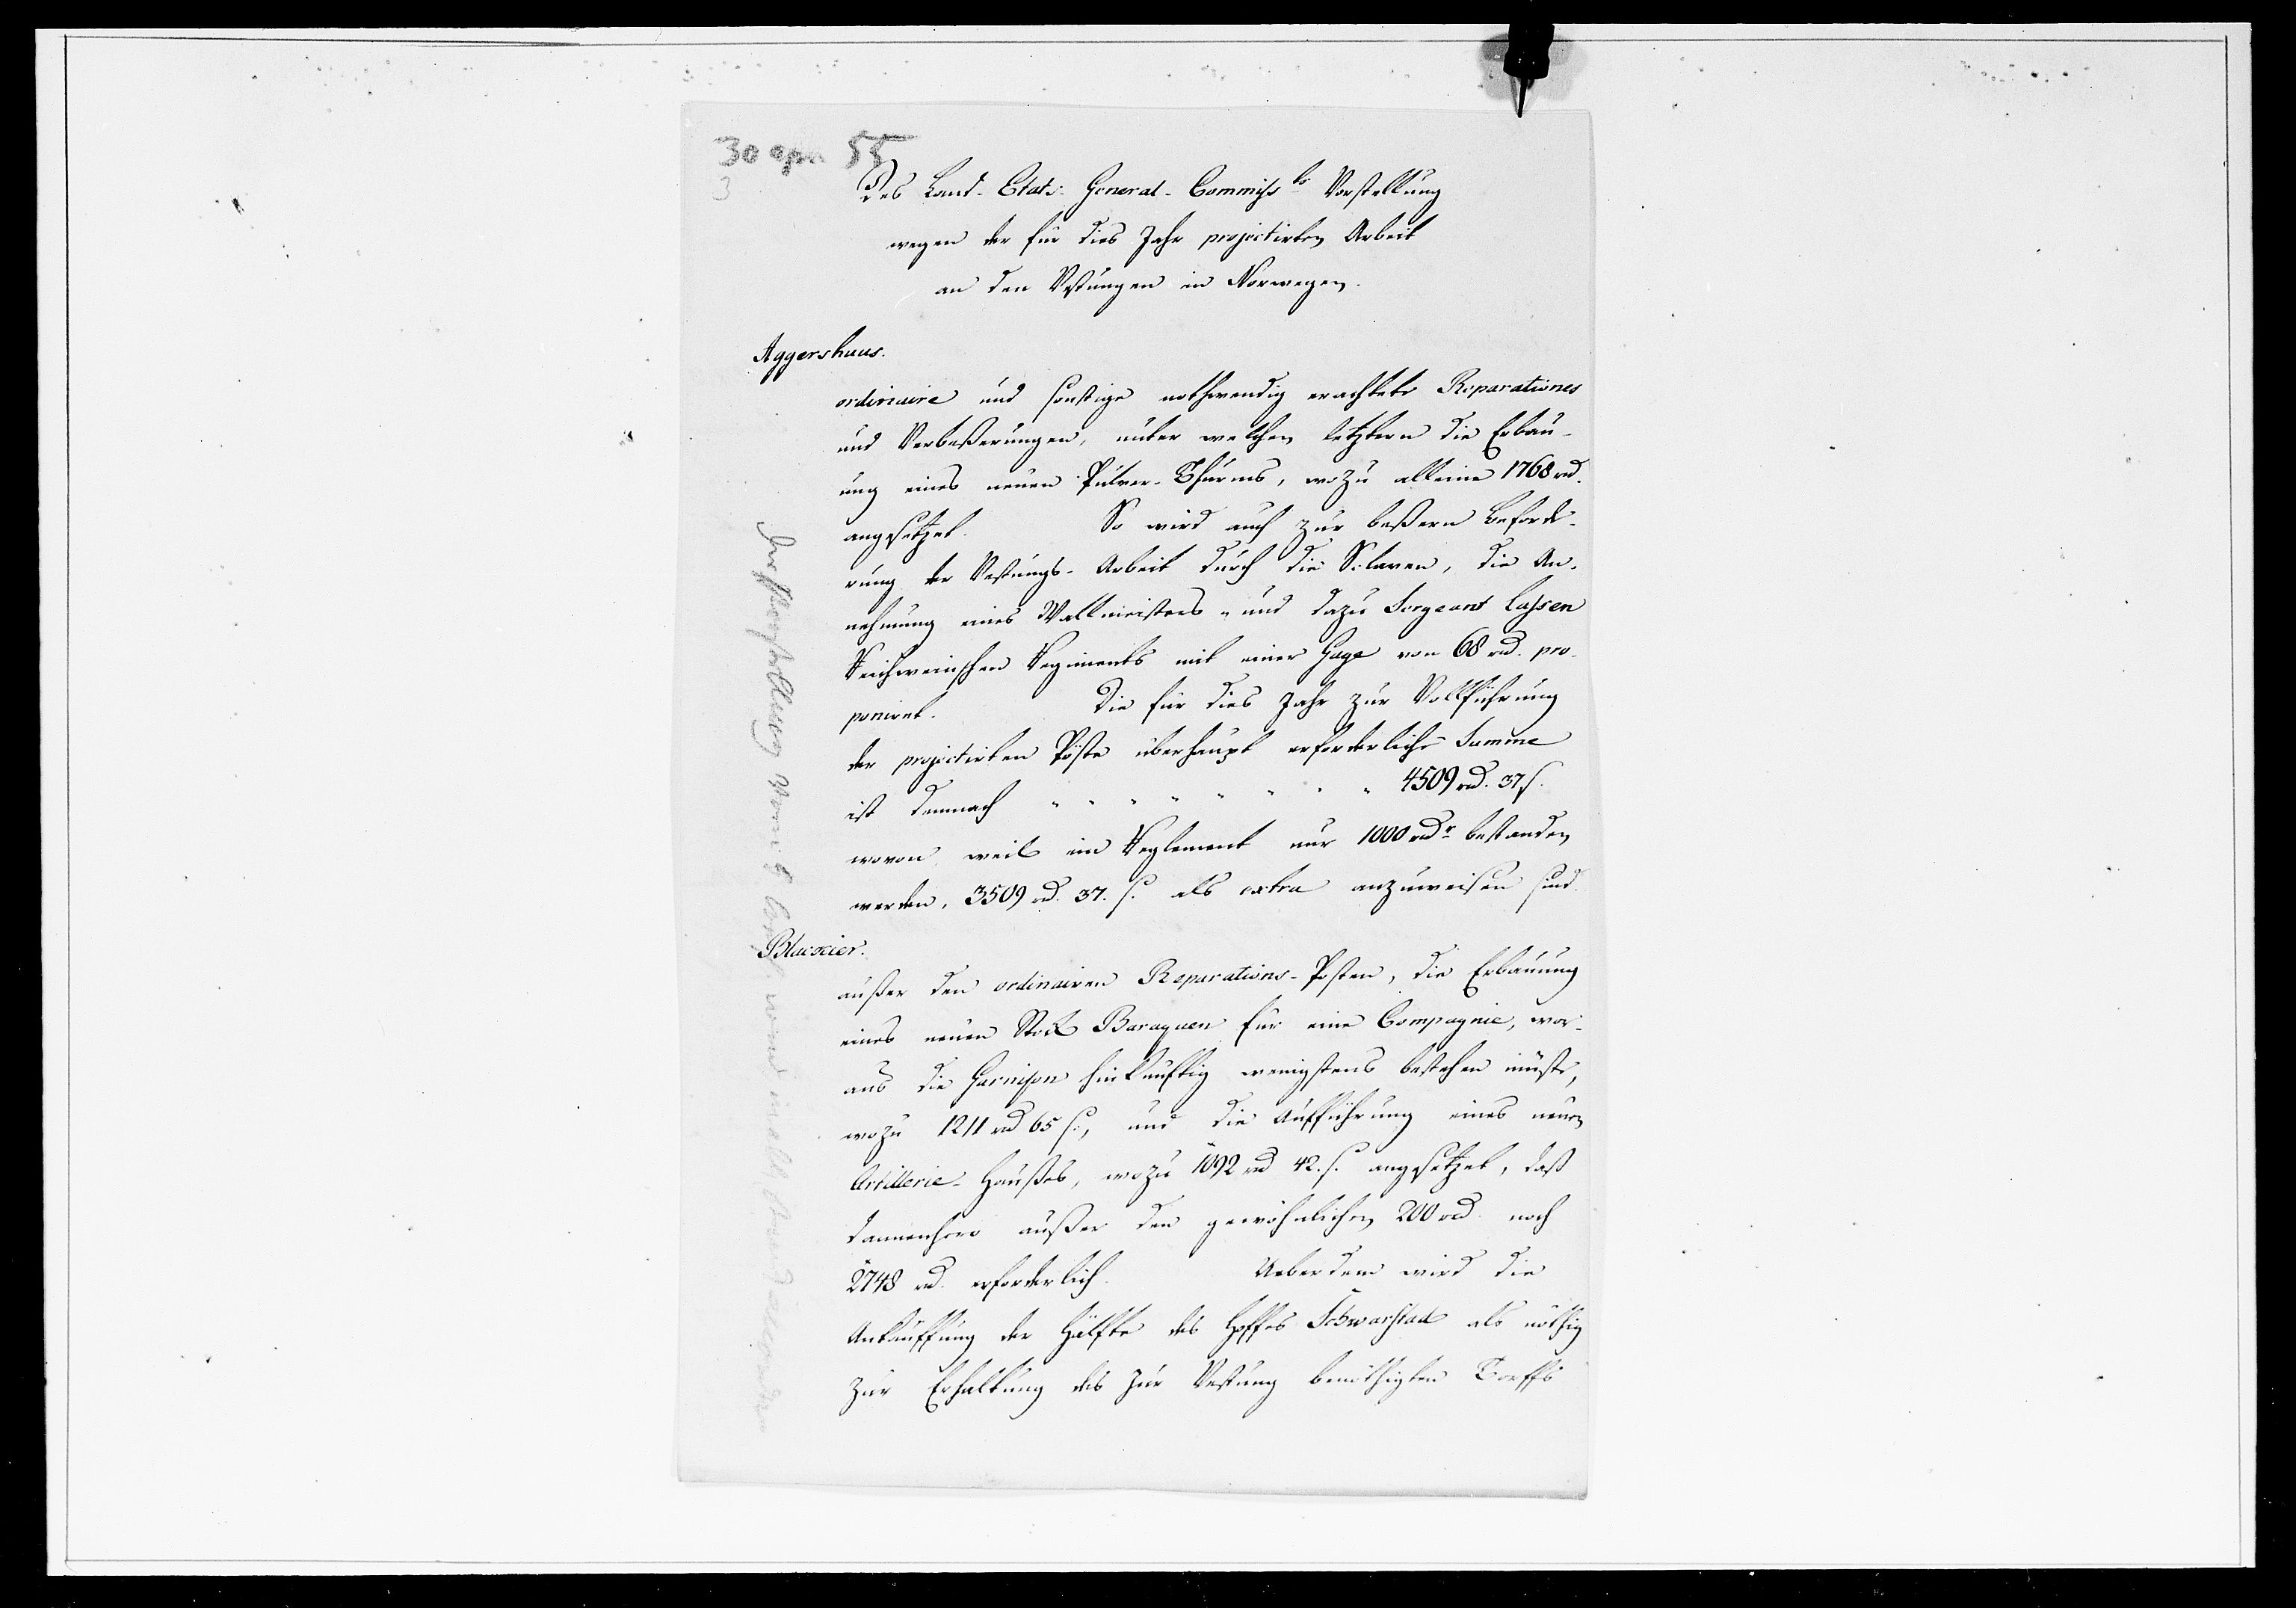 30 apr 55
3
Des Land-Etats-General-Commiss ts Vorstellung
wegen der für dies Jahr projectirten Arbeit
an den Vestungen in Norwegen.
Aggershuus.
ordinaire und sonstige nothwendig erachtete Reparationes
und Verbeßerungen, unter welchen letztern die Erbau-
ung eines neuen Pulver-Thurms, wozu alleine 1768 rd.
angesetzet. So wird auch zur beßern Beforde-
rung der Vestungs-Arbeit durch die Sclaven, die An-
nehmung eines Wallmeisters, und dazu Sergeant Lassen
Reichweinschen Regiments mit einer Gage von 68 rd. pro-
poniret. Die für dies Jahr zur Vollführung
der projectirten Pöste überhaupt erforderliche Summe
ist demnach " " " " " " " " 4509 rd. 37 s.
wovon, weil im Reglement nur 1000 rdr bestanden
werden, 3509 rd. 37. s. als extra anzuweisen sind.
Blaaxier.
außer den ordinairen Reparations-Posten, die Erbauung
eines neuen Stock Baraquen für eine Compagnie, wor-
aus die Garnison hinkünftig wenigstens bestehen müste,
wozu 1211 rd 65 s., und die Aufführung eines neuen
Artillerie-Haußes, wozu 1092 rd 42. s. angesetzet, daß
dannenhero außer den gewöhnlichen 200 rd. noch
2748 rd. erforderlich. Ueberdem wird die
Ankauffung der Hälfte des Hoffes als nöthig
zur Erhaltung des zur Vestung benöthigten Torffs